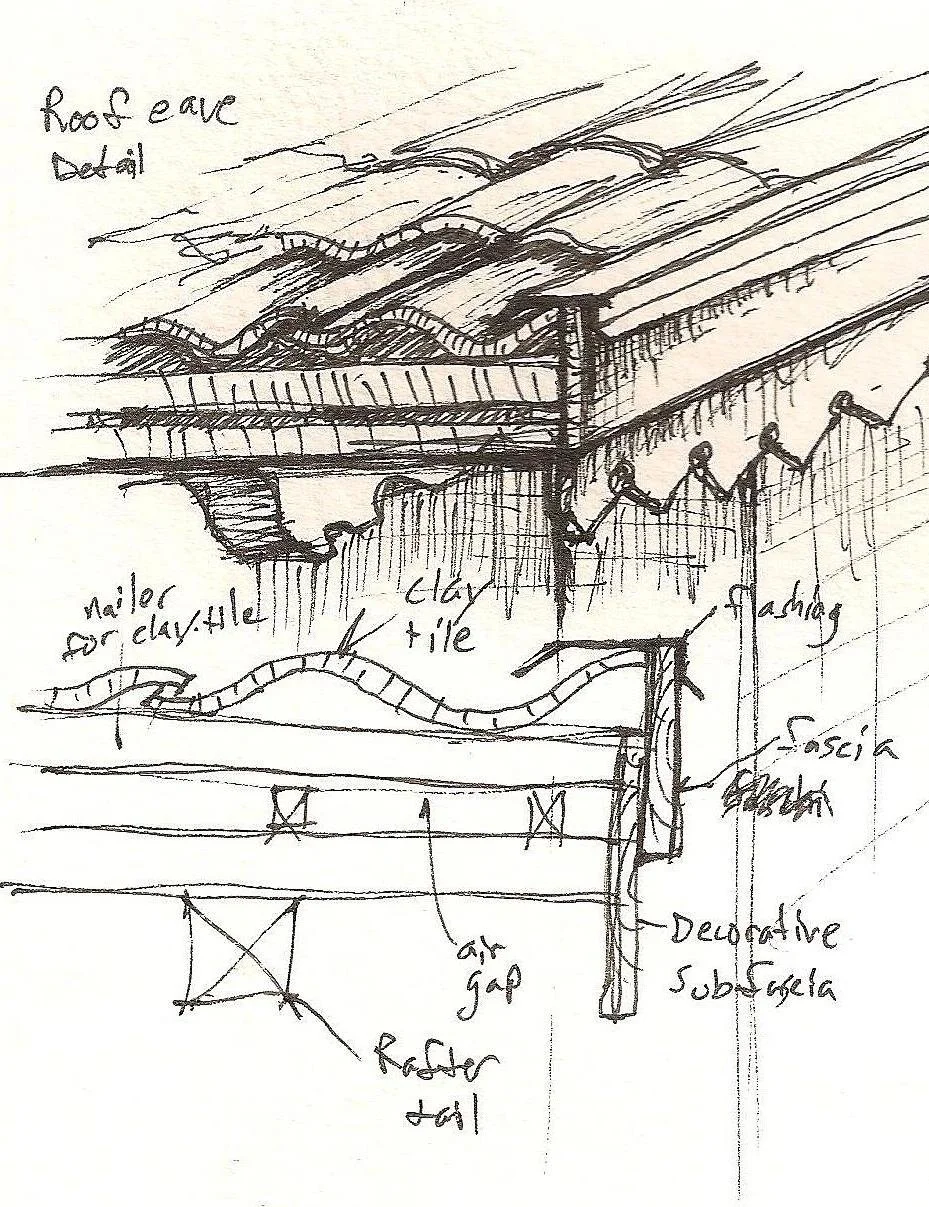 Roof eave
Detail
nailer
for clay tile
clay
tile
flashing
fascia
Decorative
Subfascia
air
gap
Rafter
tail